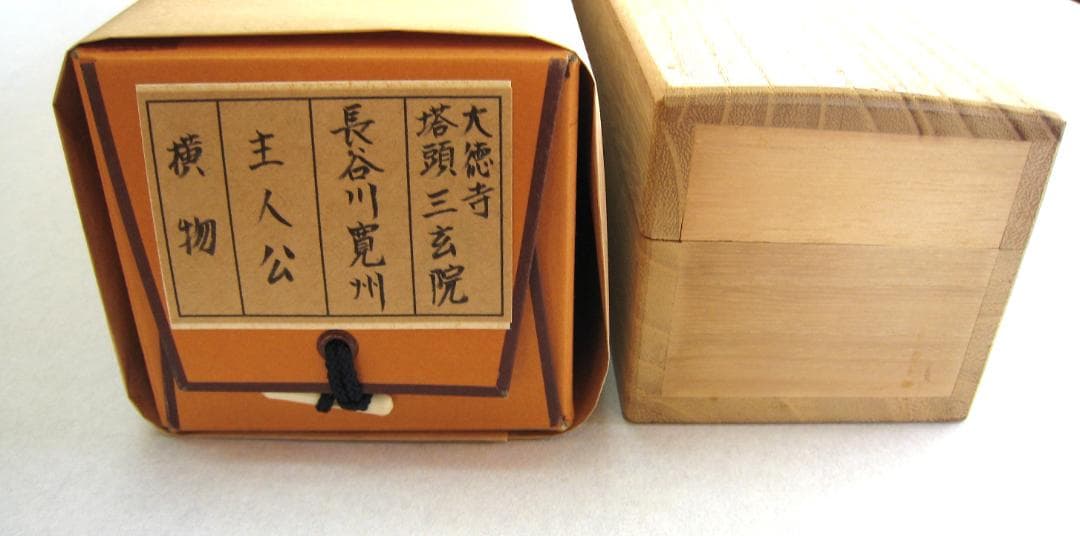 大徳寺
塔頭三玄院
長谷川寛州
主人公
横物